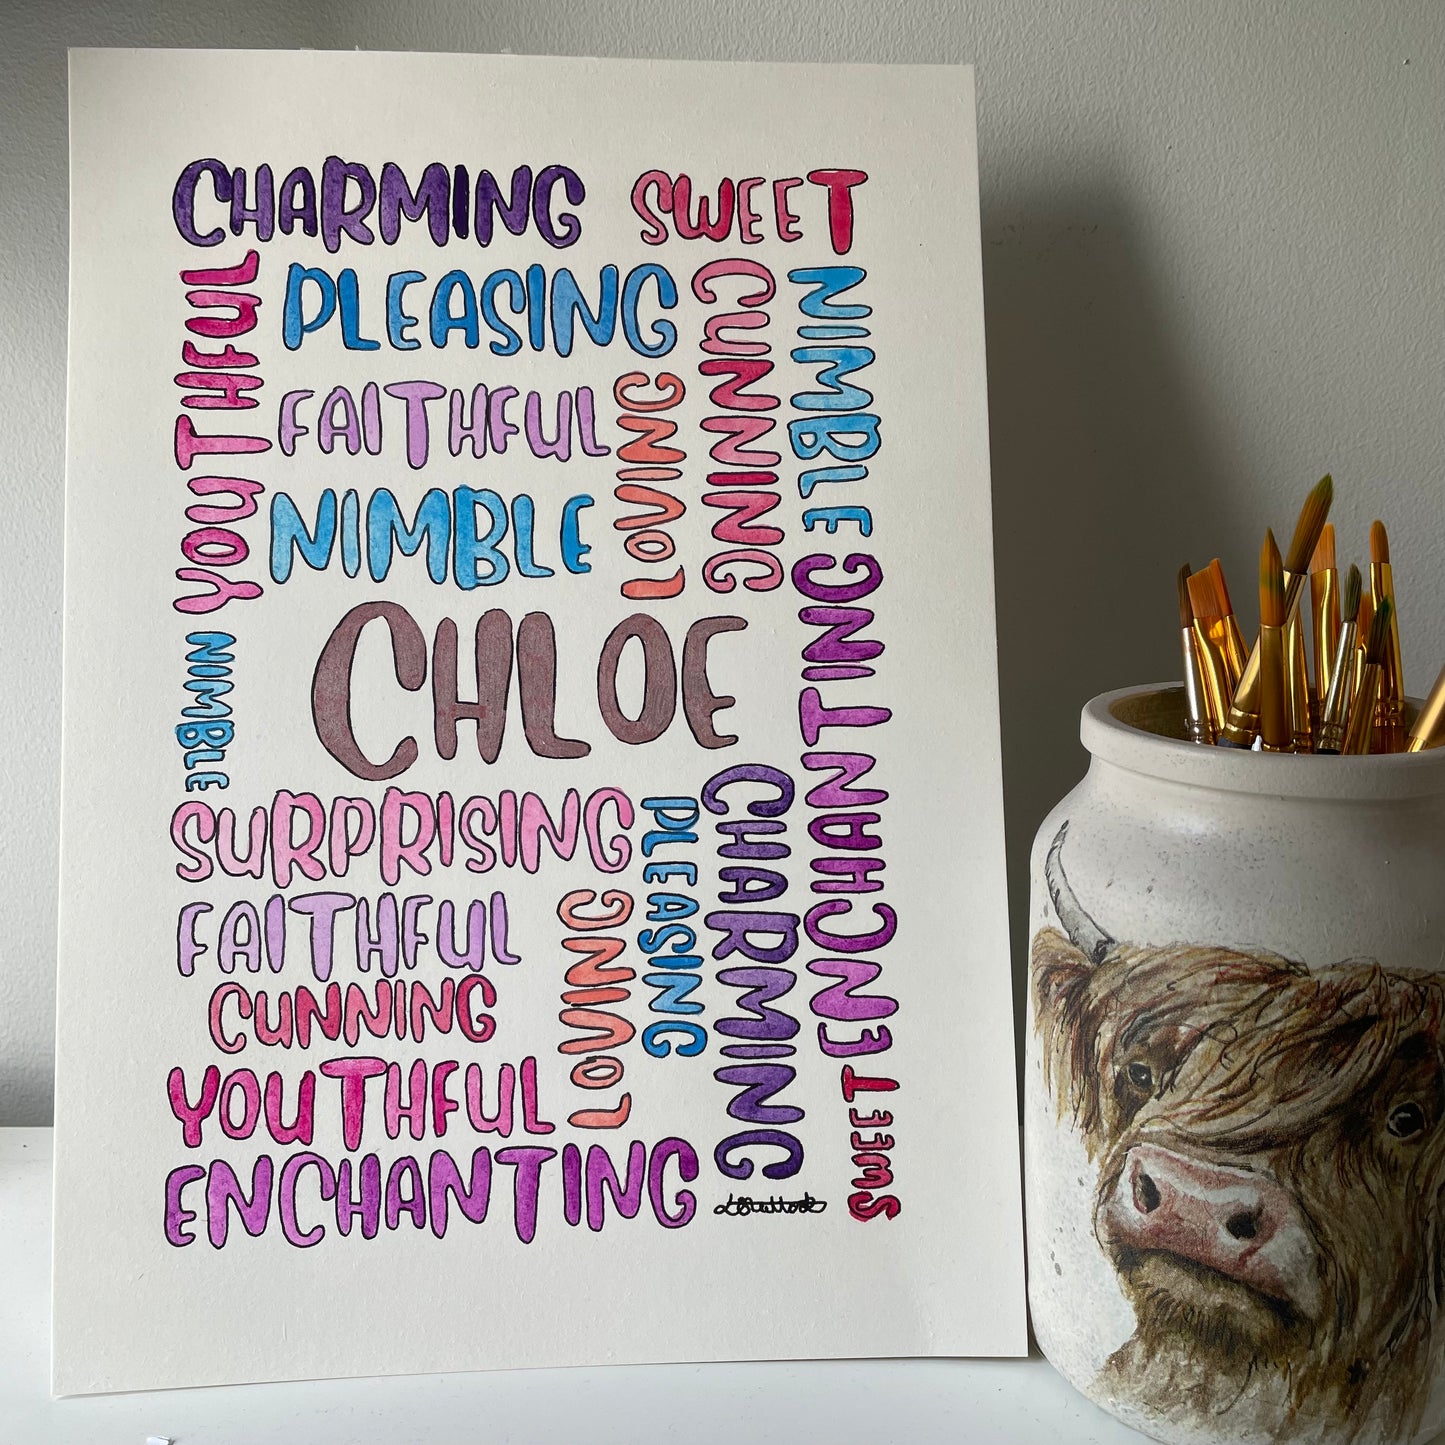 CHARMING
SWEET
YOUTHFUL
PLEASING
CUNNING
NIMBLE
FAITHFUL
LOVING
NIMBLE
ENCHANTING
CHLOE
NIMBLE
SURPRISING
PLEASING
CHARMING
FAITHFUL
LOVING
CUNNING
YOUTHFUL
SWEET
ENCHANTING